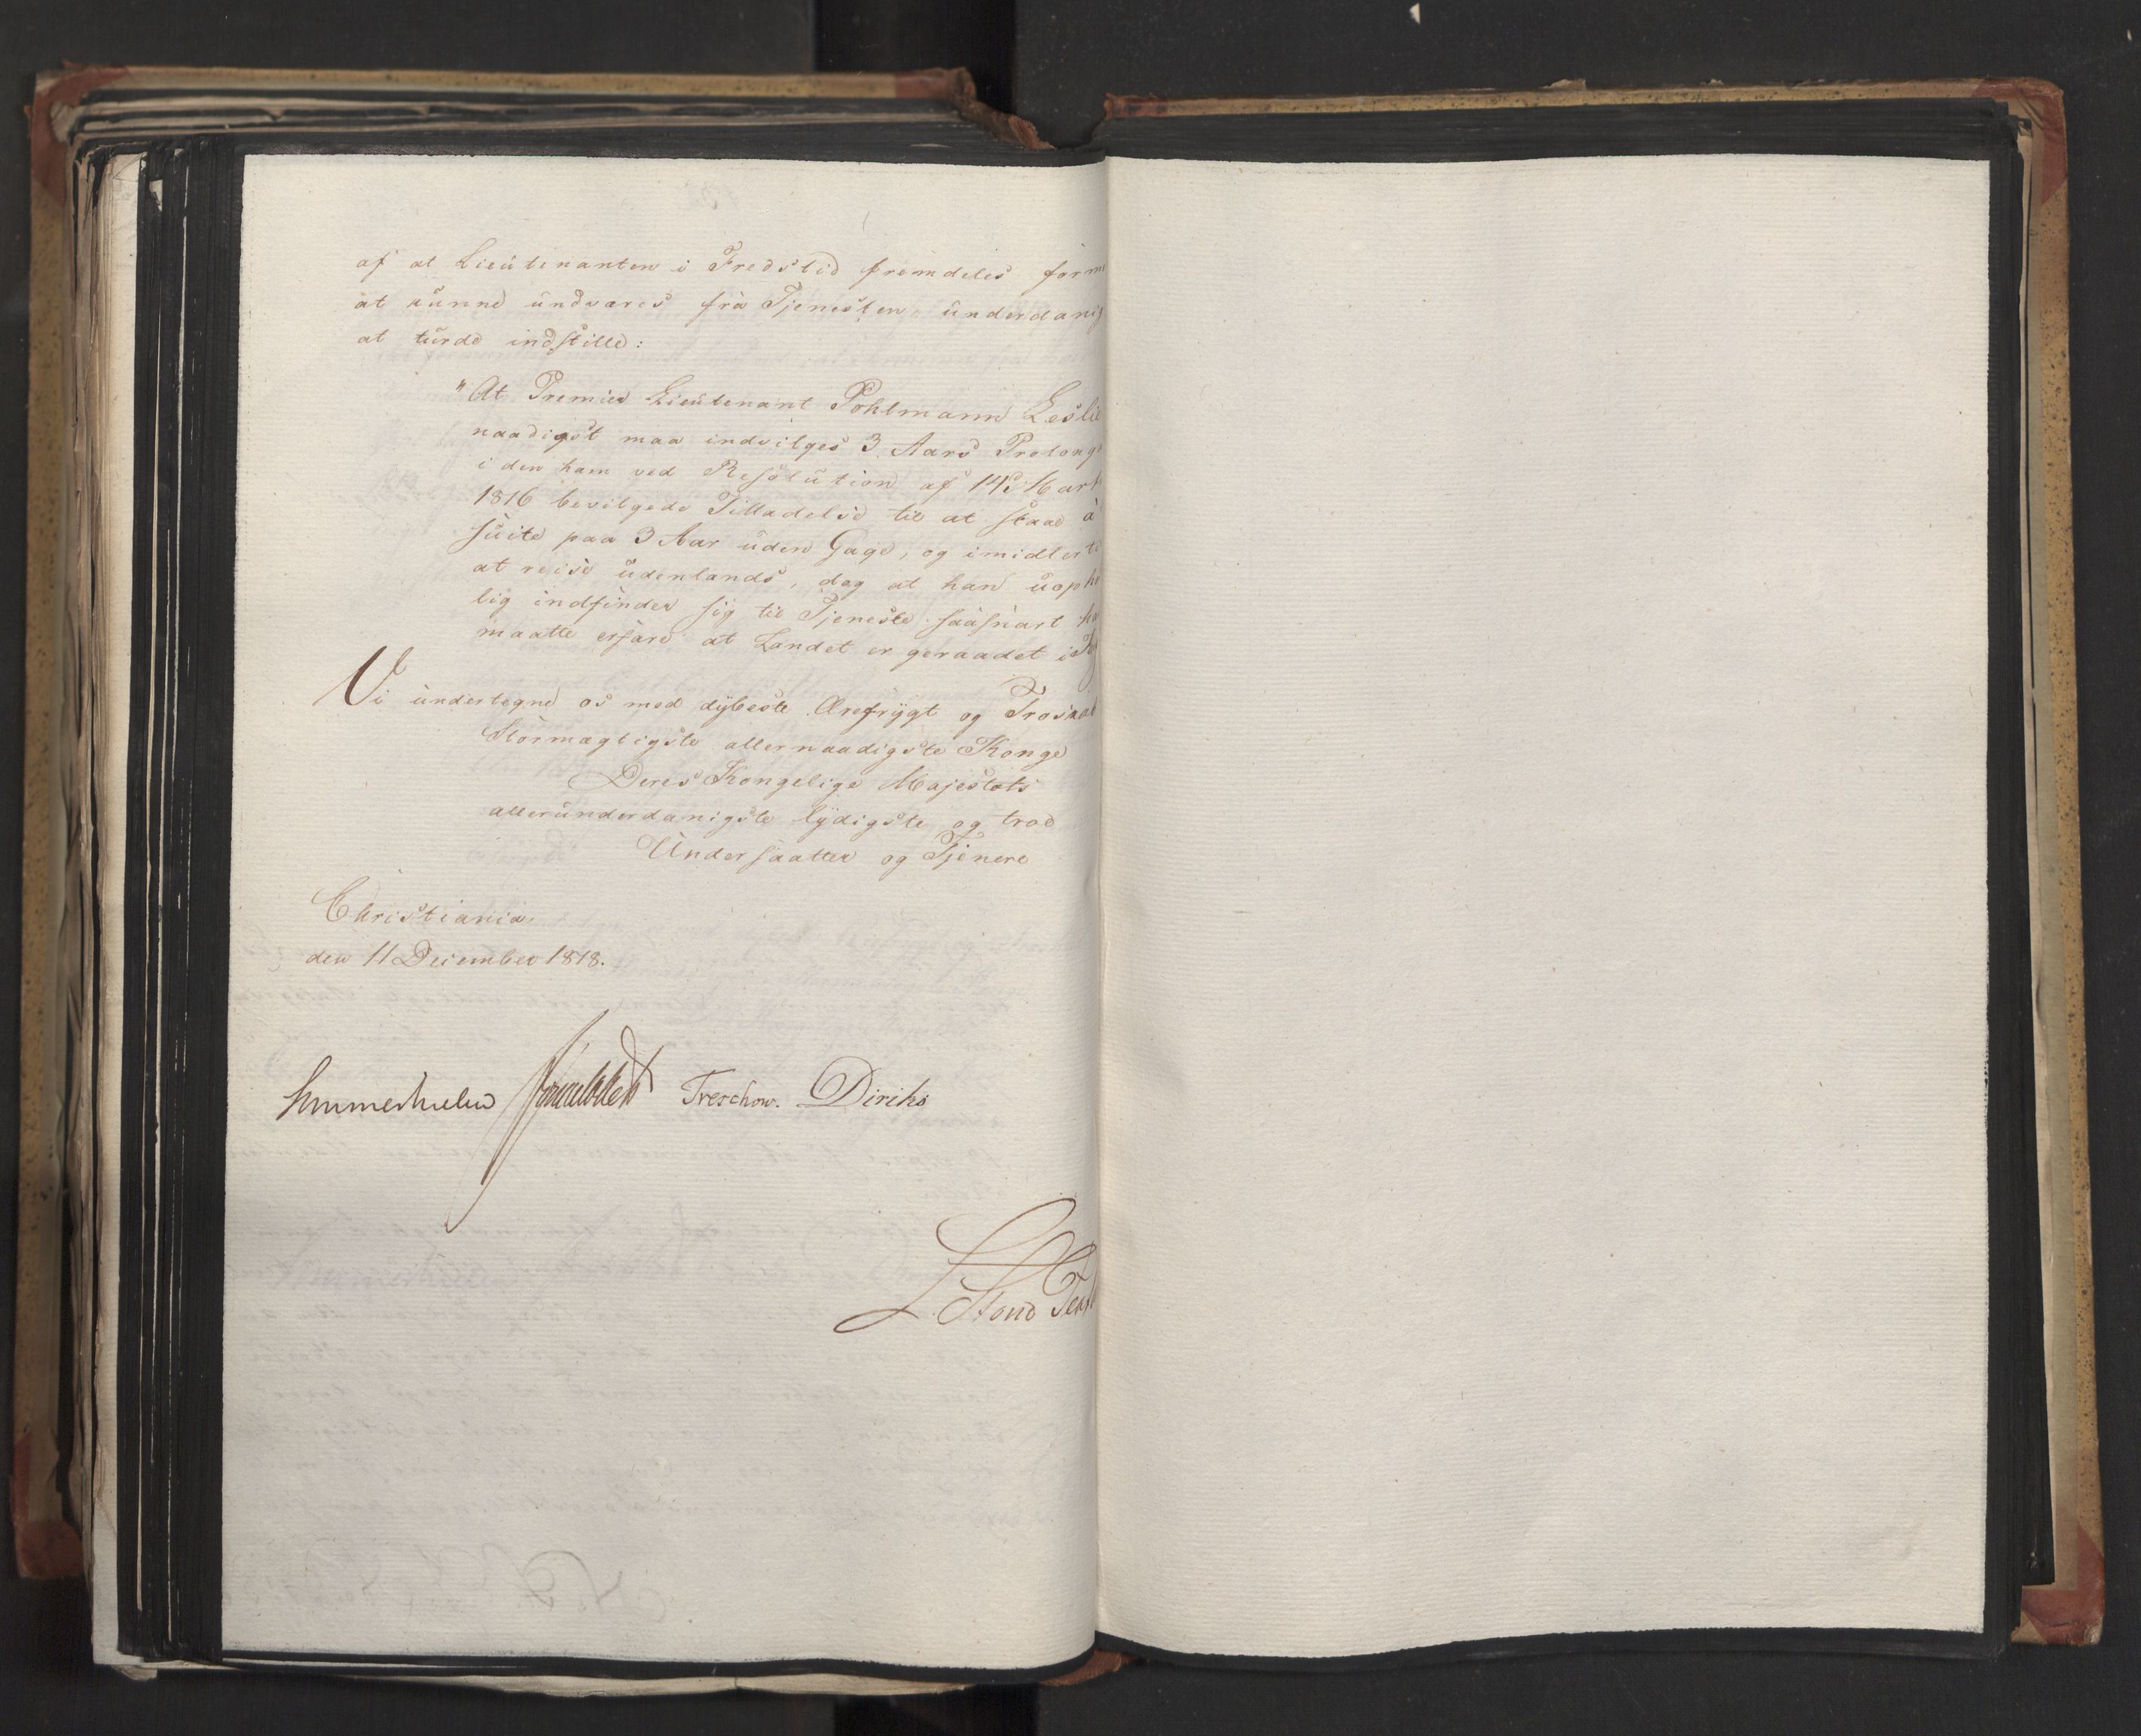 af at Lieutenanten i Fredstid fremdeles form
at kunne undværes fra Tjenesten underdanig
at turde indstille:
"At Premier Lieutenant Pohlmann Leslie
naadigst maa indvilges 3 Aars Prolong
i den ham ved Resolution af 14de Marts
1816 bevilgede Tilladelse til at staae à
suite paa 3 Aar uden Gage, og imidlerti
at reise udenlands, dog at han uophø
lig indfinder sig til Tjeneste saasnart ha
maatte erfare at Landet er geraadet i
Vi undertegne os med dybeste Ærefrygt og Troskab
Stormægtigste allernaadigste Konge
Deres Kongelige Majestæts
allerunderdanigste lydigste og troe
Undersaatter og Tjenere
Christiania
den 11 December 1818.
Sommerhielm Treschow. Diriks
L.